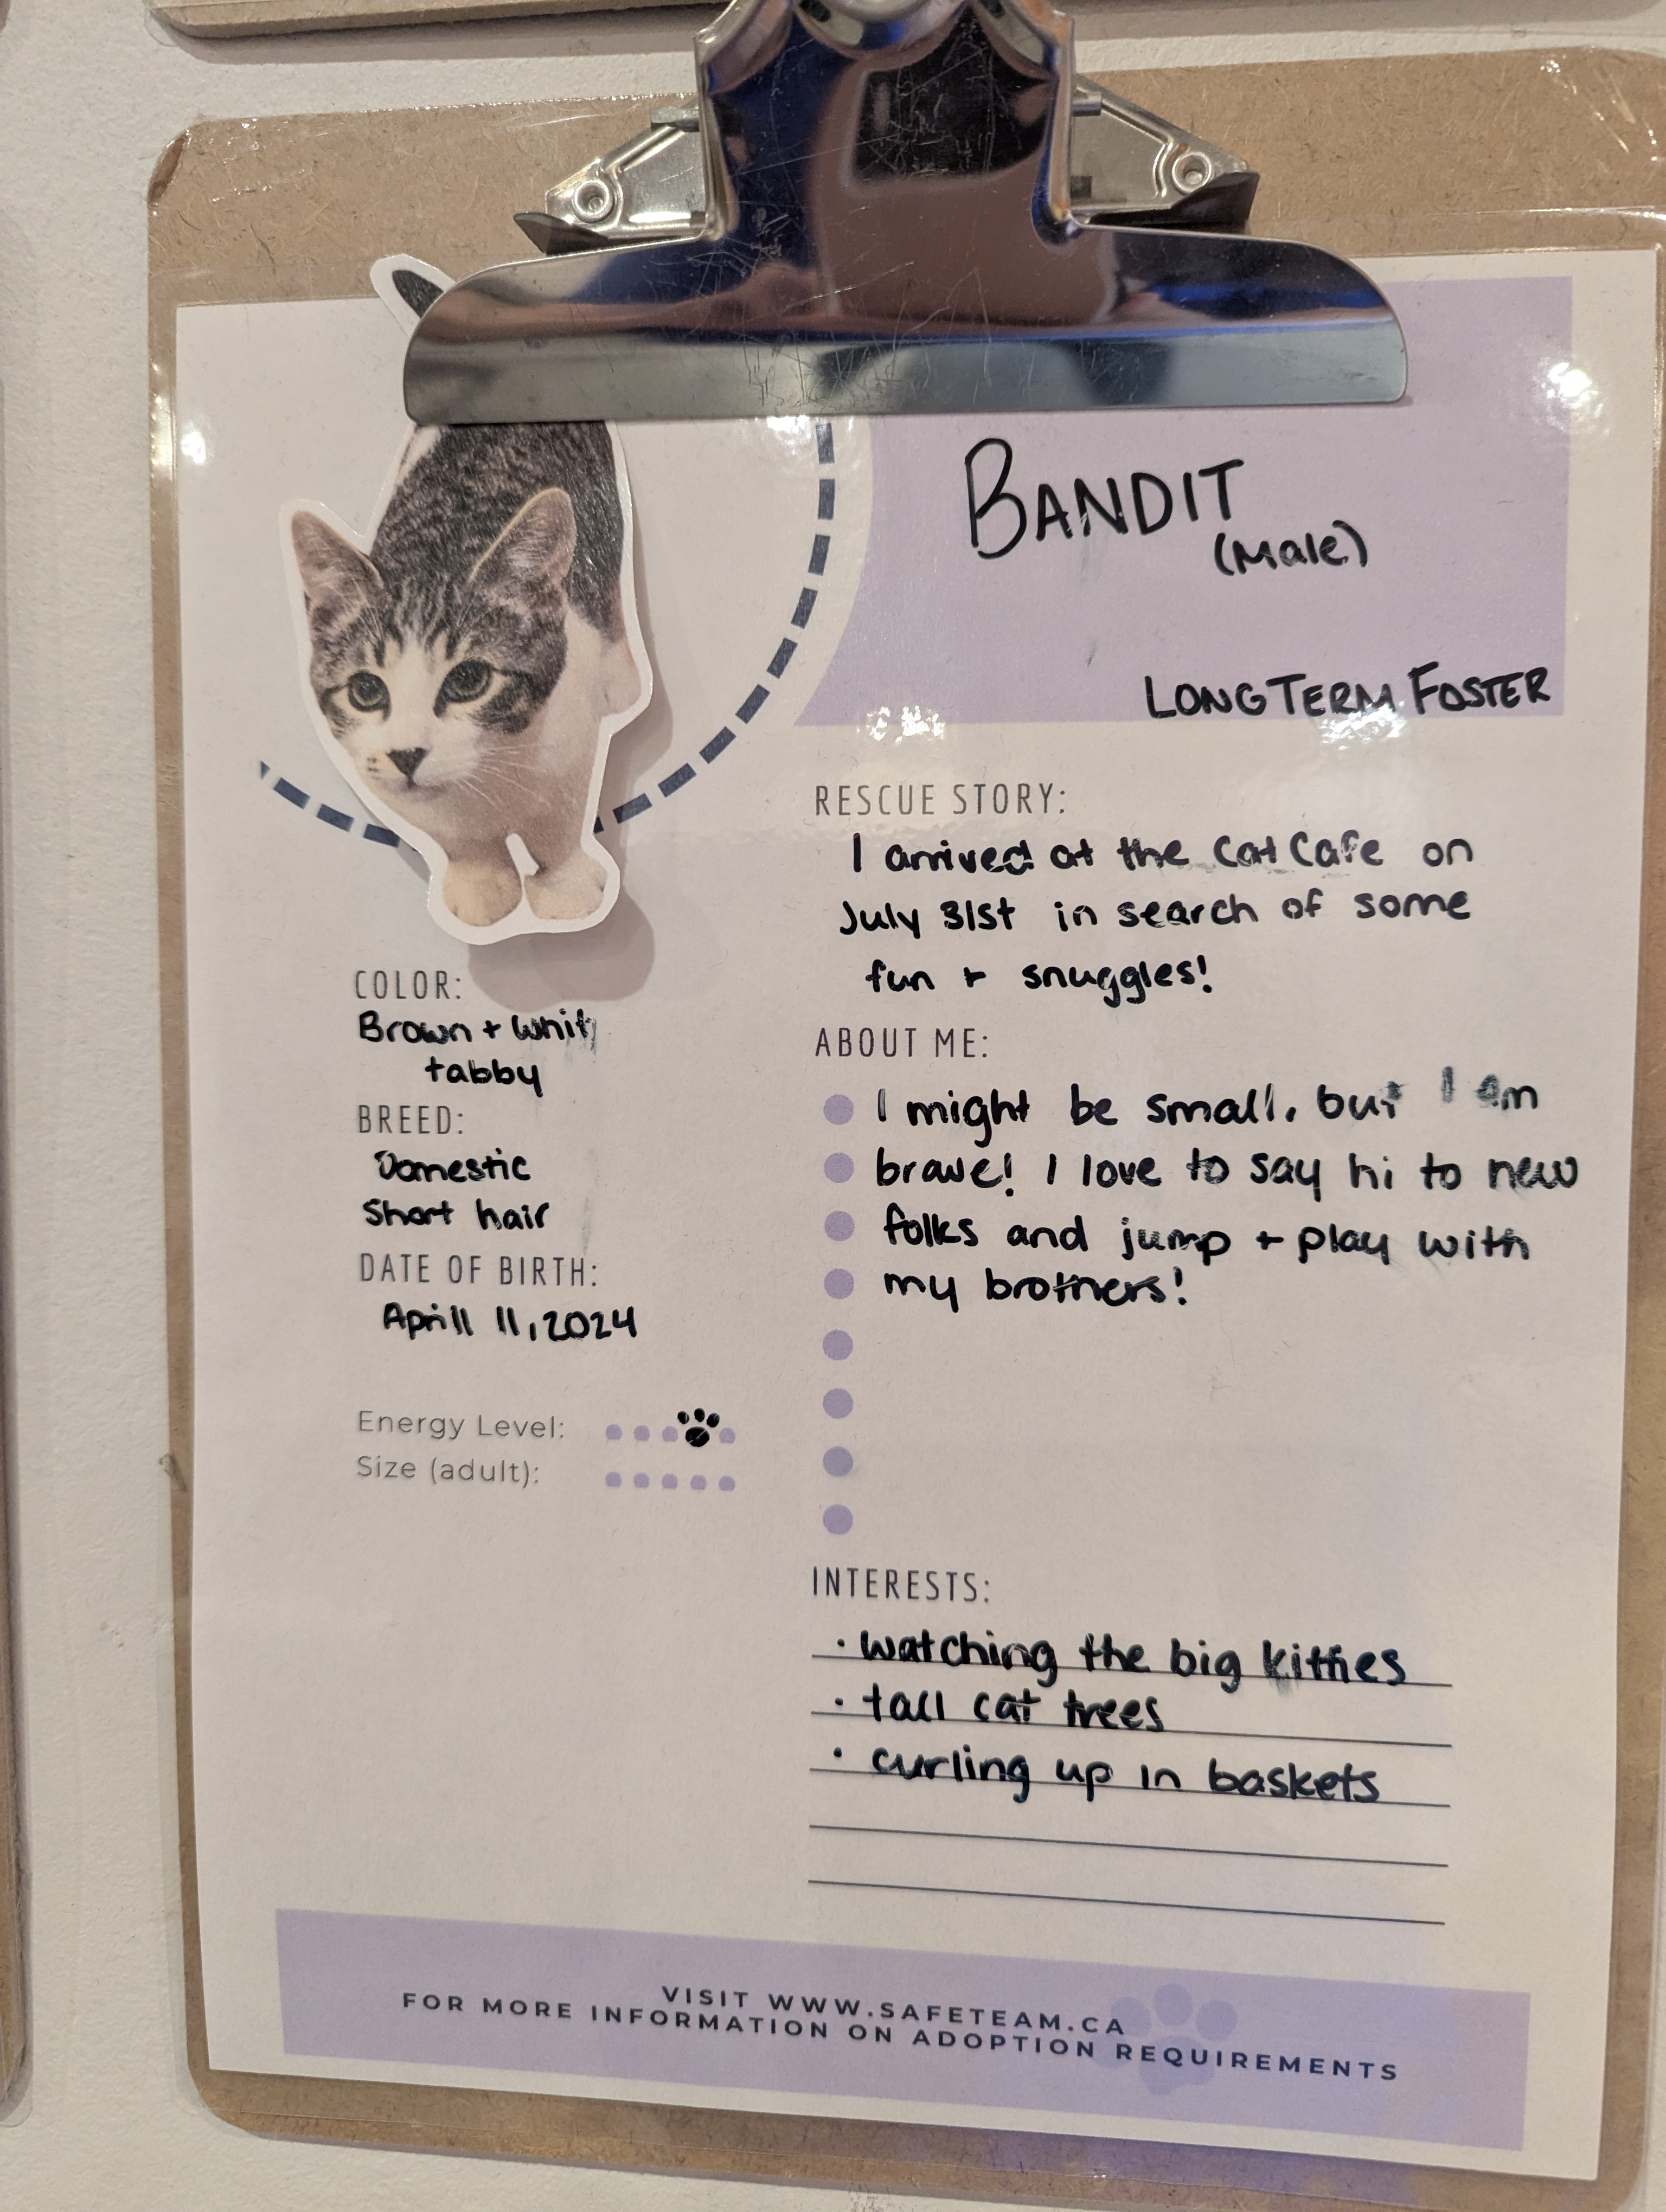 BANDIT
(Male)
LONG TERM FOSTER
RESCUE STORY:
I arrived at the Cat Cafe on
July 31st in search of some
fun + snuggles!
COLOR:
Brown + Whit
tabby
BREED:
Domestic
Short hair
DATE OF BIRTH:
Aprill 11, 2024
Energy Level:
Size (adult):
ABOUT ME:
I might be small, but I am
brave! I love to say hi to new
folks and jump + play with
my brothers!
INTERESTS:
· watching the big kitties
· tall cat trees
· curling up in baskets
VISIT WWW.SAFETEAM.CA
FOR MORE INFORMATION ON ADOPTION REQUIREMENTS